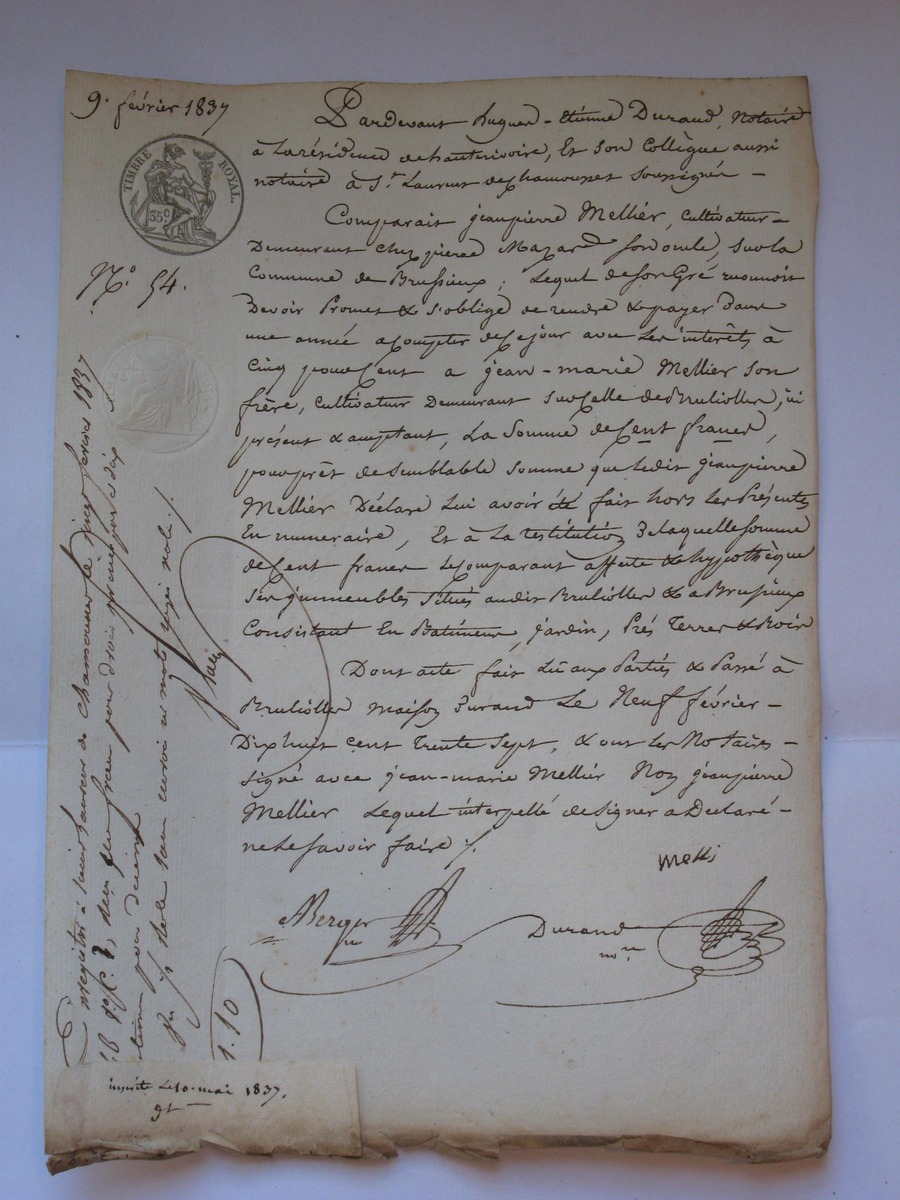 9. février 1837
TIMBRE ROYAL.
35 c
N.o 54.
Pardevant hugues-étienne Durand, Notaire
à La résidence de hauterivoire, Et son Collègue aussi
notaire à S.t Laurent de Chamousset soussignés –
Comparait jeanpierre Mellier, cultivateur –
Demeurant chez pierre Mazard son oncle, sur la
Commune de Brussieux ; Lequel de son Gré reconnoit
Devoir Promet & s'oblige de rendre & payer dans
une année acompter de Ce jour avec Les intérêts à
Cinq pour Cent a jean-marie Mellier son
frère, cultivateur Demeurant sur Celle de Brulioller, ici
présent & acceptant, La Somme de Cent francs,
pour prêt de semblable somme que Ledit jeanpierre
Mellier Déclare Lui avoir été fait hors Les Présentes
En numeraire, Et à La restitution De laquelle somme
de Cent francs Le Comparant affecte & hypothèque
Ses jmmeubles situés audit Brulioller & a Brussieux
Consistant En Batimens, jardin, Prés Terres & Bois
Dont acte fait Lû aux Parties & Passé à
Brulioller maison Durand Le Neuf février –
Dix huit cent trente Sept, & ont Les Notaires –
signé avec jean-marie Mellier Non jeanpierre
Mellier Lequel interpellé de signer a Déclaré –
ne Le savoir faire ./.
Melli
Berger
Durand
no.re
Enregistré à Saint Laurent de Chamousset le février 1837
1.10
inscrite Le 10. mai 1837.